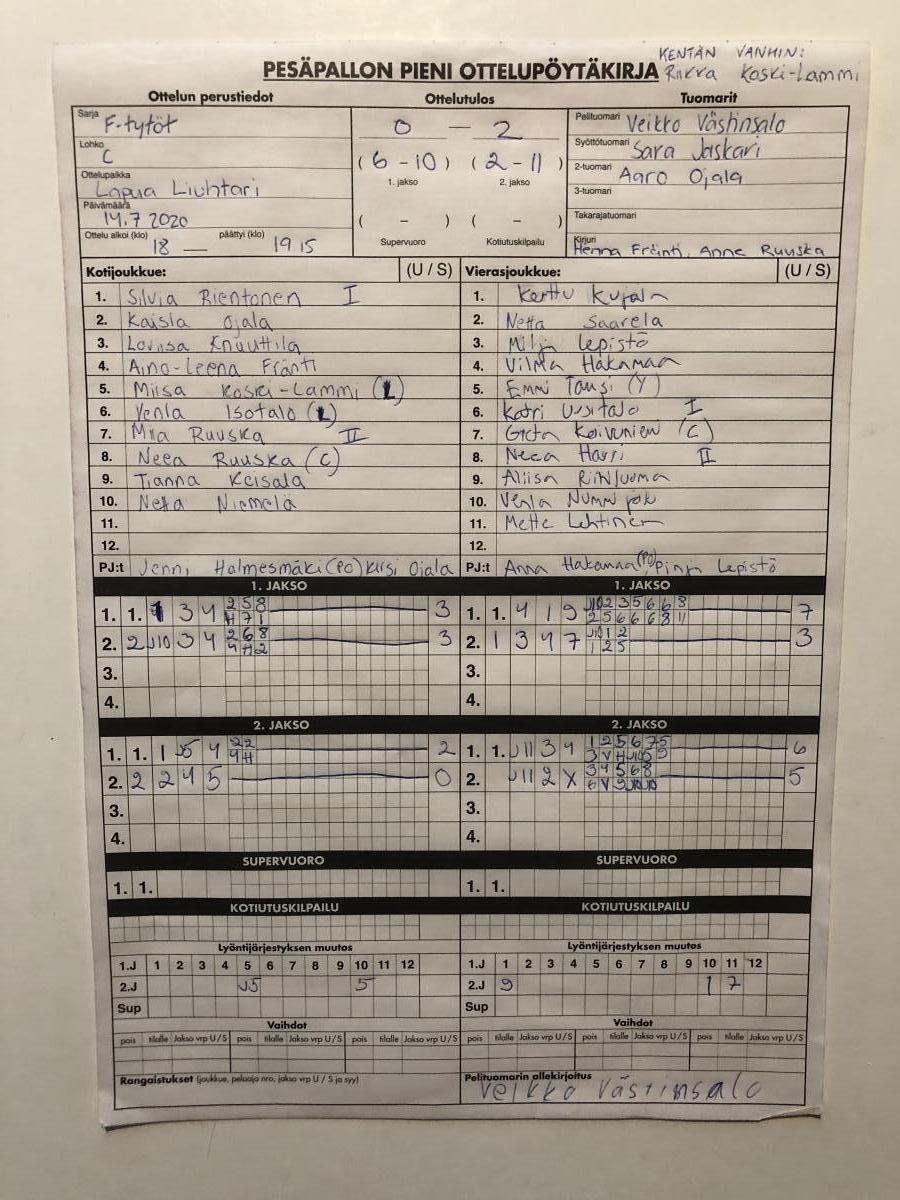 KENTÄN VANHIN:
PESÄPALLON PIENI OTTELUPÖYTÄKIRJA Riikka Koski-Lammi
Ottelun perustiedot Ottelutulos Tuomarit
Sarja F-tytöt
Lohko C
Ottelupaikka Lapua Liuhtari
Päivämäärä 14.7 2020
Ottelu alkoi (klo) 18 — päättyi (klo) 19 15
0 — 2
(6 - 10) (2 - 11)
1. jakso 2. jakso
( - ) ( - )
Supervuoro Kotiutuskilpailu
Pelituomari Veikko Västinsalo
Syöttötuomari Sara Jaskari
2-tuomari Aaro Ojala
3-tuomari
Takarajatuomari
Kirjuri Henna Fränti, Anne Ruuska
Kotijoukkue: (U / S)
1. Silvia Rientonen I
2. Kaisla Ojala
3. Loviisa Knuuttila
4. Aino-Leena Fränti
5. Miisa Koski-Lammi (L)
6. Venla Isotalo (L)
7. Miia Ruuska II
8. Neea Ruuska (C)
9. Tianna Keisala
10. Netta Niemelä
11.
12.
PJ:t Jenni Halmesmäki (PO) Kirsi Ojala
Vierasjoukkue: (U / S)
1. Kerttu Kujala
2. Netta Saarela
3. Milja Lepistö
4. Vilma Hakamaa
5. Emmi (Y)
6. Katri Uusitalo I
7. Greta Koivunien (C)
8. Neea Harri II
9. Aliisa Riihiluoma
10. Venla
11. Mette Lehtinen
12.
PJ:t Anna Hakamaa (PO), Pinja Lepistö
1. JAKSO 1. JAKSO
1. 1. 1 3 4 2 5 8 3
4 7 1
2. 2 J10 3 4 2 6 8 3
4 H 2
3.
4.
1. 1. 4 1 9 J10 2 3 5 6 6 8 7
2 5 6 6 6 8 11
2. 1 3 4 7 J10 1 2 3
1 2 5
3.
4.
2. JAKSO 2. JAKSO
1. 1. 1 J5 4 2 2 2
4 H
2. 2 2 4 5 0
3.
4.
1. 1. J11 3 4 1 2 5 6 7 5 6
3 V H J10 5 9
2. J11 2 X 3 4 5 6 8 5
6 V 9
3.
4.
SUPERVUORO SUPERVUORO
1. 1. 1. 1.
KOTIUTUSKILPAILU KOTIUTUSKILPAILU
Lyöntijärjestyksen muutos Lyöntijärjestyksen muutos
1.J 1 2 3 4 5 6 7 8 9 10 11 12 1.J 1 2 3 4 5 6 7 8 9 10 11 12
2.J J5 5 2.J 9 1 7
Sup Sup
Vaihdot Vaihdot
pois tilalle Jakso vrp U / S pois tilalle Jakso vrp U / S pois tilalle Jakso vrp U / S pois tilalle Jakso vrp U / S pois tilalle Jakso vrp U / S pois tilalle Jakso vrp U / S
Rangaistukset (joukkue, pelaaja nro, jakso vrp U / S ja syy)
Pelituomarin allekirjoitus
Veikko Västinsalo